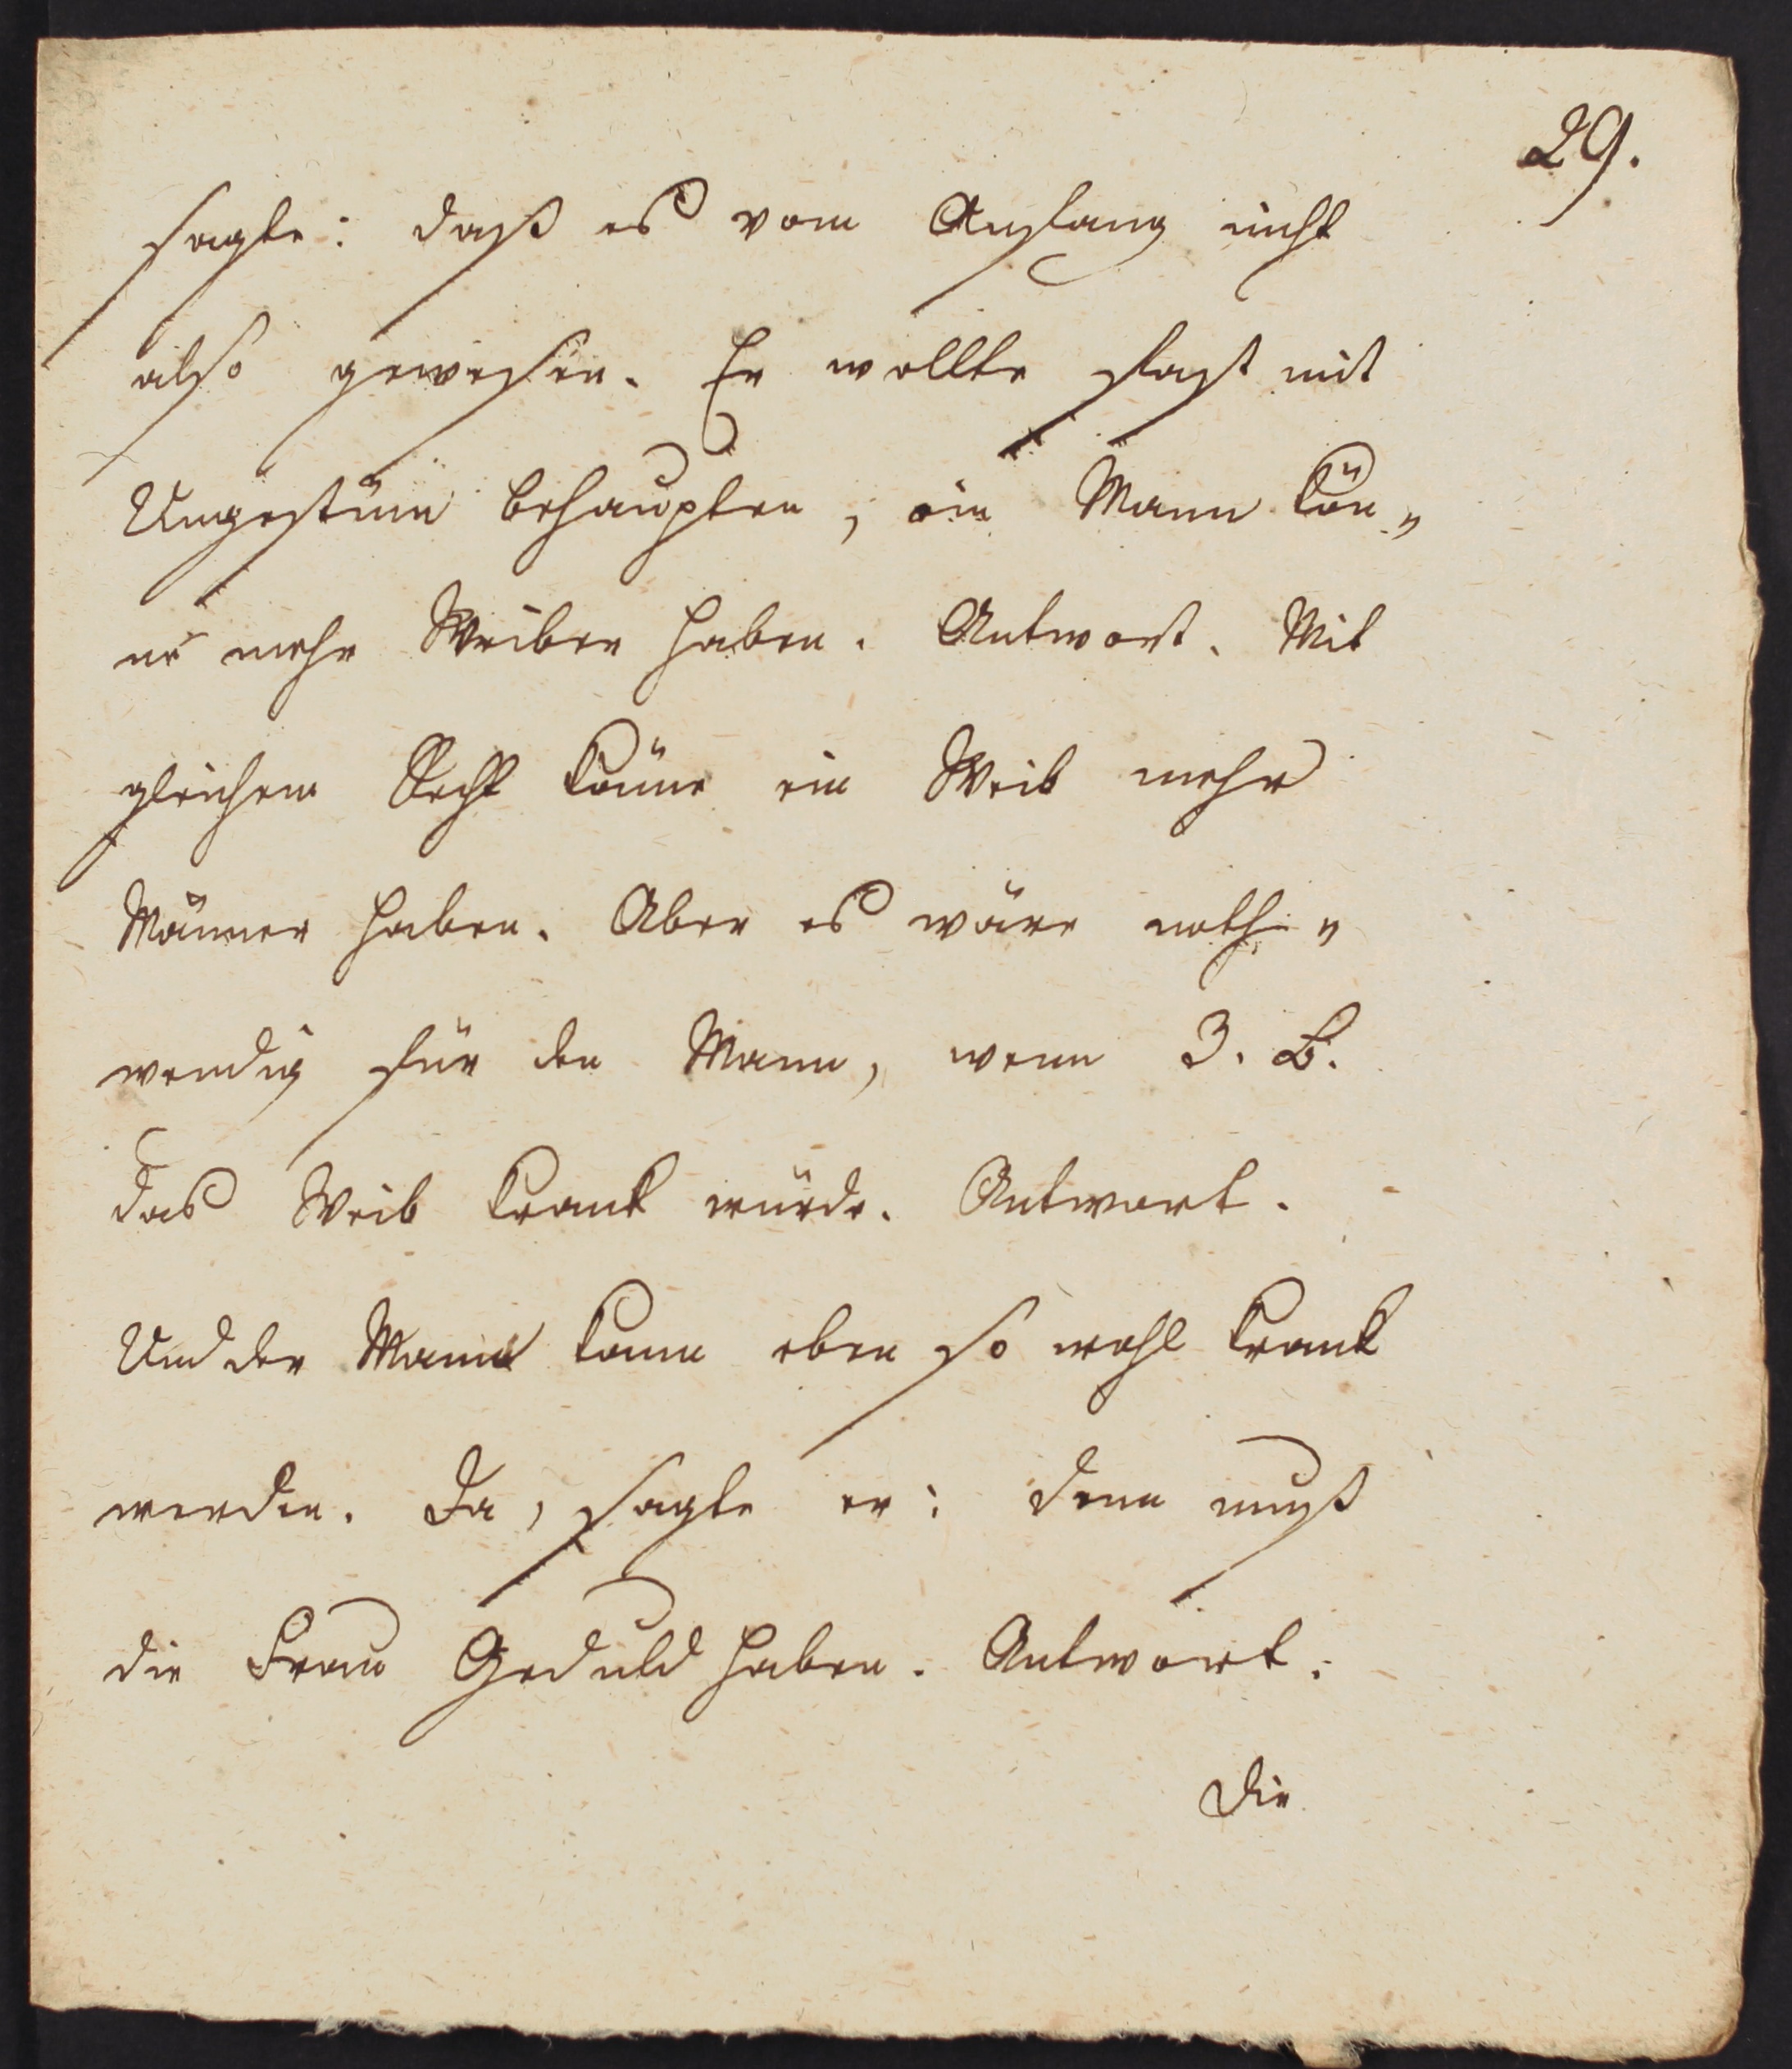 29.
sagte: daß es vom Anfang nicht
also gewesen. Er wollte fast mit
Ungestüm behaupten, ein Mann kön„
ne mehr Weiber haben. Antwort. Mit
gleichem Recht könne ein Weib mehr
Männer haben. Aber es wäre noth„
wendig für den Mann, wenn z. B.
das Weib krank würde. Antwort.
Und der Mann kann eben so wohl krank
werden. Ja, sagte er: denn muß
die Frau Geduld haben. Antwort:
Die